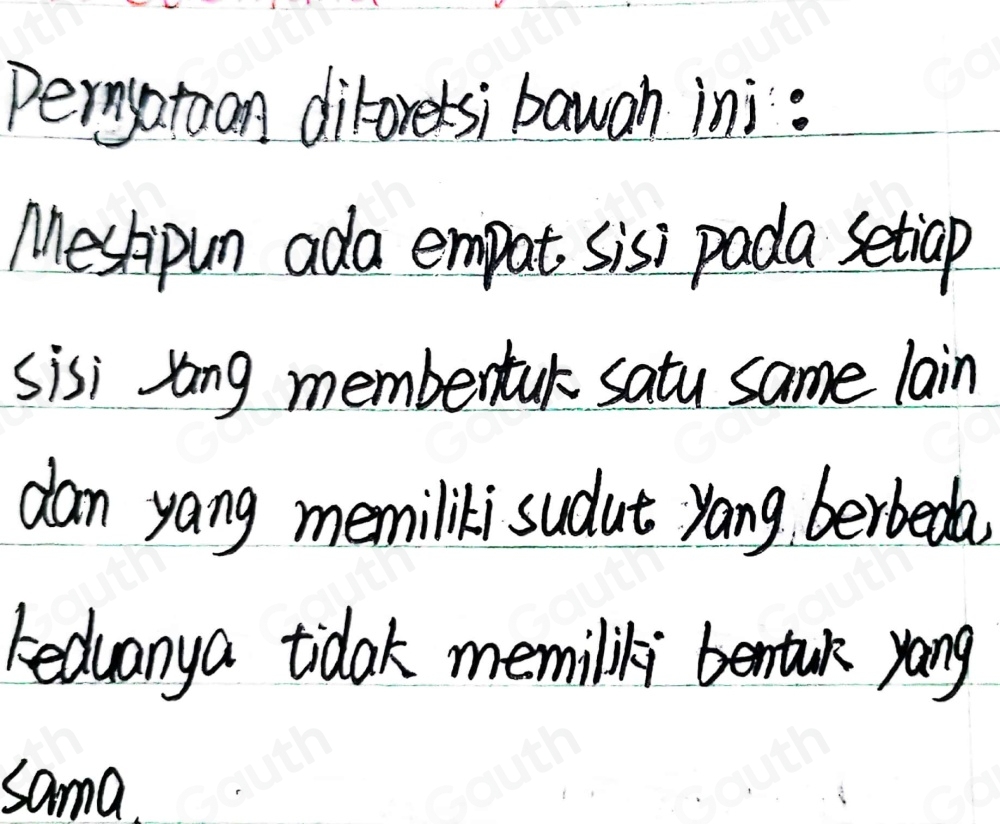 Pernyataan dikoreksi bawah ini :
Meskipun ada empat sisi pada setiap
sisi yang membentuk satu same lain
dan yang memiliki sudut yang berbeda,
keduanya tidak memiliki bentuk yang
sama.